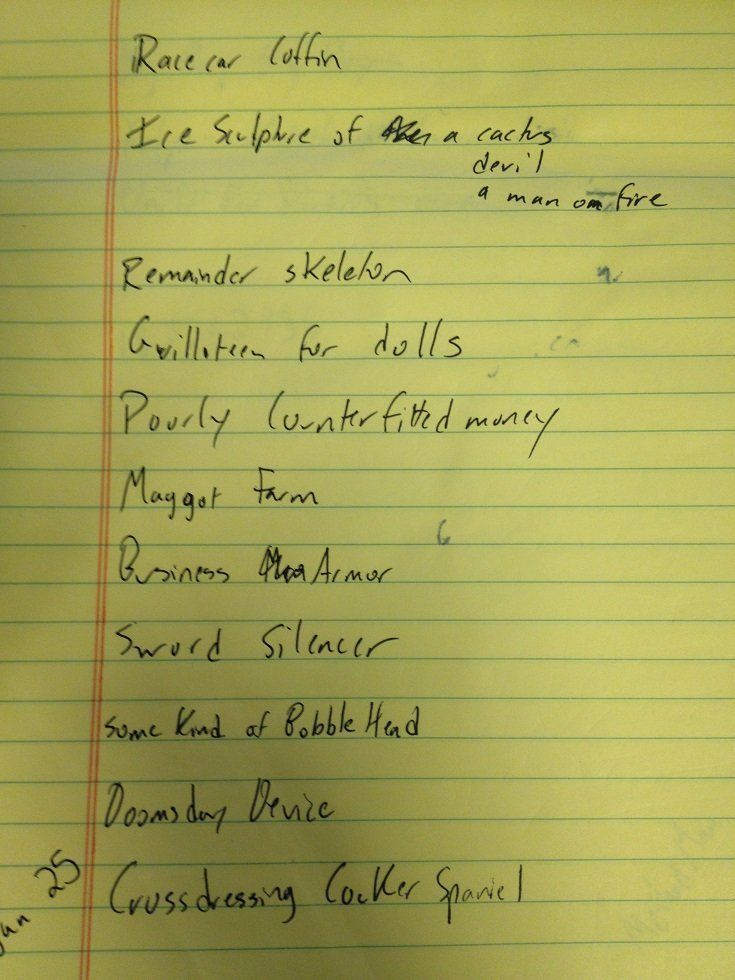 Racecar Coffin
Ice Sculpture of a cactus
devil
a man on fire
Remainder skeleton
Guilloteen for dolls
Pourly Counterfitted money
Maggot Farm
Business Armor
Sword Silencer
some Kind of Bobble Head
Doomsday Device
Jan 25
Crossdressing Cocker Spaniel